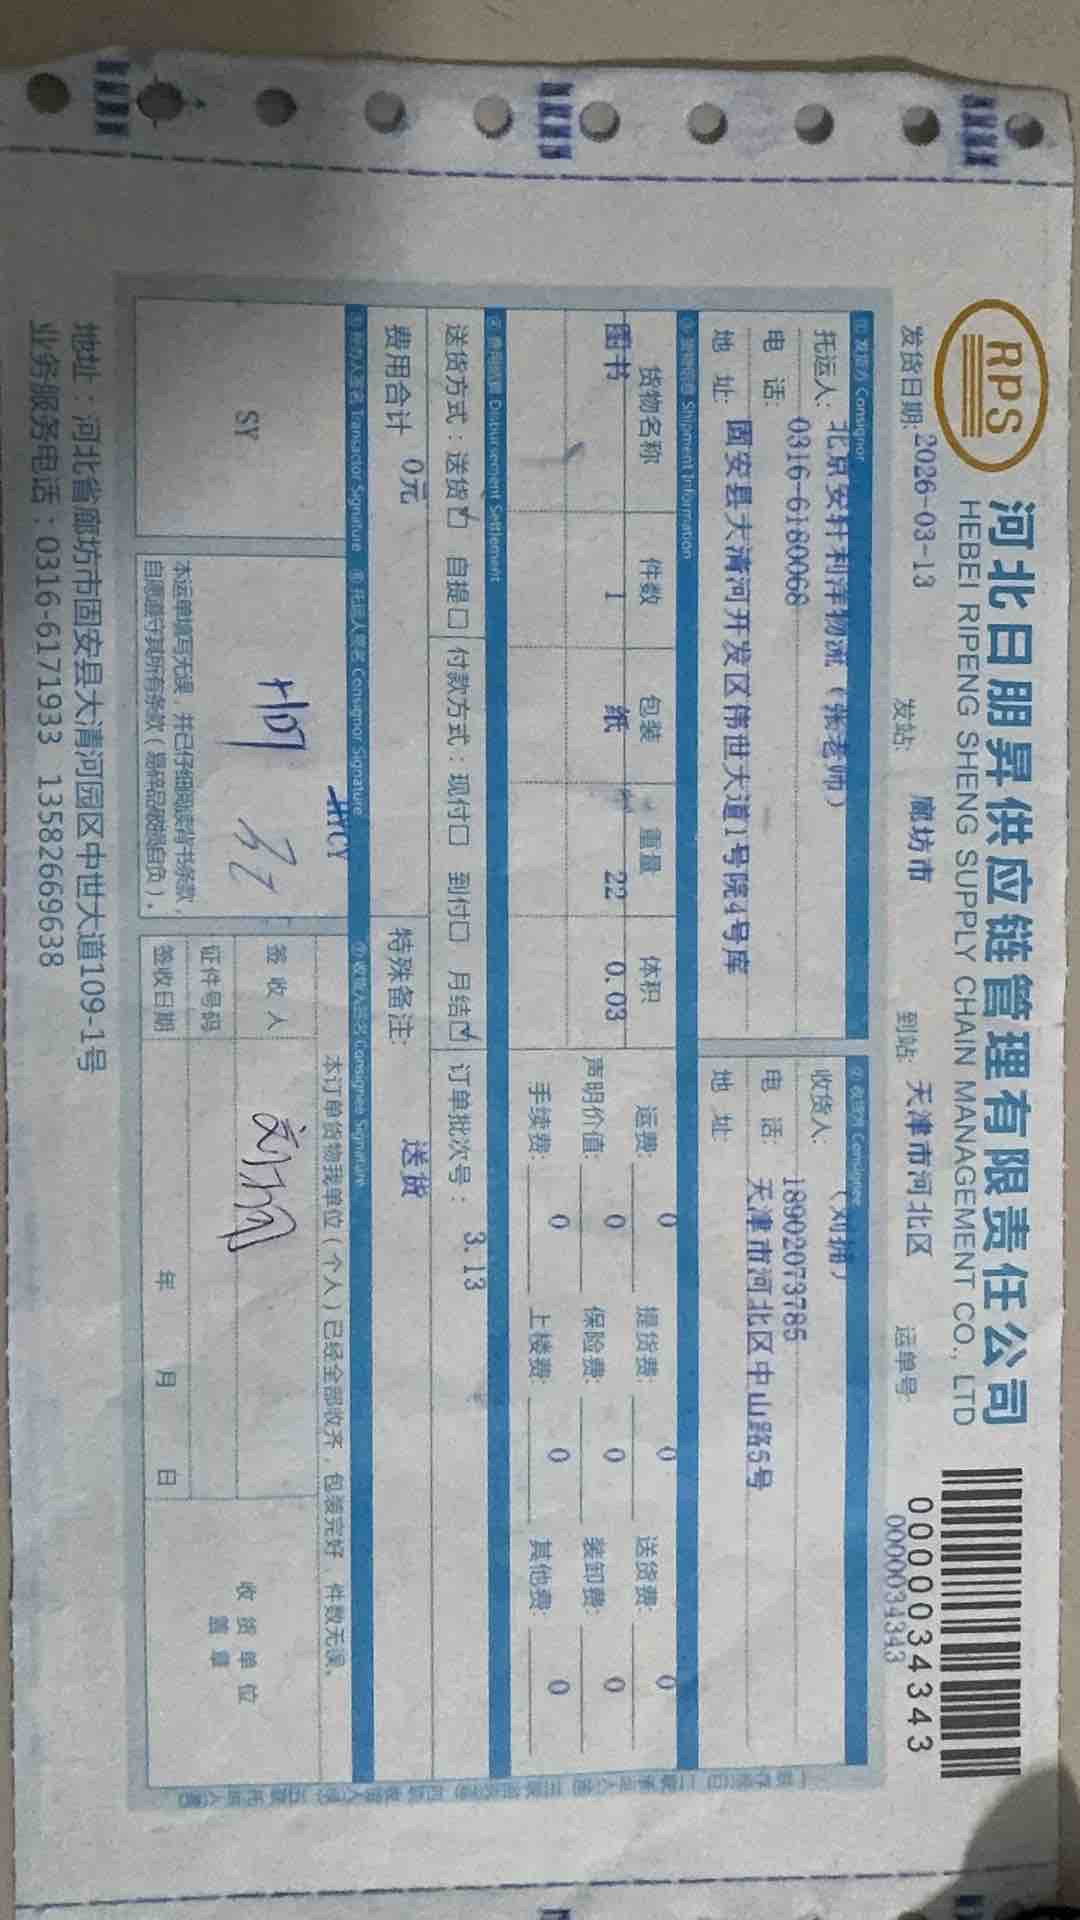 RPS
河北日朋昇供应链管理有限责任公司
HEBEI RIPENG SHENG SUPPLY CHAIN MANAGEMENT CO., LTD
0000034343
0000034343
发货日期: 2026-03-13 发站: 廊坊市 到站: 天津市河北区 运单号
① 发货方 Consignor ② 收货方 Consignee
托运人: 北京安轩利泽物流（张老师） 收货人: （刘拥）
电 话: 0316-6180068 电 话: 18902073785
地 址: 固安县大清河开发区伟世大道1号院4号库 地 址 天津市河北区中山路5号
③ 货物信息 Shipment Information
货物名称 件数 包装 重量 体积 运费: 0 提货费: 0 送货费: 0
图书 1 纸 22 0.03 声明价值: 0 保险费: 0 装卸费: 0
手续费: 0 上楼费: 0 其他费: 0
④ 费用结算 Disbursement Settlement
送货方式：送货☑ 自提口 付款方式：现付口 到付口 月结☑ 订单批次号： 3.13
费用合计 0元 特殊备注: 送货
⑤ 经办人签名 Transactor Signature ⑥ 托运人签名 Consignor Signature ⑦ 收货人签名 Consignee Signature
SY
本运单填写无误，并已仔细阅读背书条款，
自愿遵守其所有条款（易碎品破损自负）。
本订单货物我单位（个人）已经全部收齐，包装完好，件数无误。
签 收 人
证件号码
签收日期 年 月 日
收 货 单 位
盖 章
地址：河北省廊坊市固安县大清河园区中世大道109-1号
业务服务电话：0316-6171933 13582669638